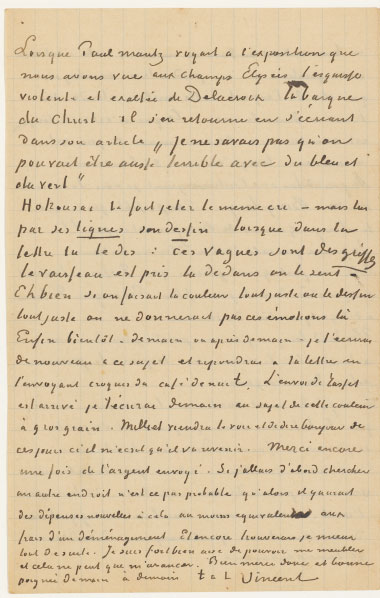 Lorsque Paul Mantz voyait a l'exposition que
nous avons vue aux Champs Elysés l'esquisse
violente et exaltée de Delacroix la barque
du Christ il s'en retourne en s'écriant
dans son article „ Je ne savais pas qu'on
pouvait être aussi terrible avec du bleu et
du vert "
Hokousai te fait jeter le meme cri – mais lui
par ses lignes son dessin lorsque dans ta
lettre tu te dis : ces vagues sont des griffes
le vaisseau est pris là dedans on le sent –
Eh bien si on faisait la couleur tout juste ou le dessin
tout juste on ne donnerait pas ces émotions là
Enfin bientôt – demain ou après demain – je t'écrirai
de nouveau a ce sujet et repondrai a ta lettre en
t'envoyant croquis du café de nuit. L'envoi de Tasset
est arrivé je t'écrirai demain au sujet de cette couleur
à gros grain. Milliet viendra te voir et te dire bonjour de
ces jours ci il m'ecrit qu'il va revenir. Merci encore
une fois de l'argent envoyé. Si j'allais d'abord chercher
un autre endroit n'est ce pas probable qu'alors il y aurait
des dépenses nouvelles à cela au moins equivalentes aux
frais d'un déménagement Et encore trouverais je mieux
tout de suite. Je suis fort bien aise de pouvoir me meubler
et cela ne peut que m'avancer. Bien merci donc et bonne
poignée de main à demain t. à t. Vincent